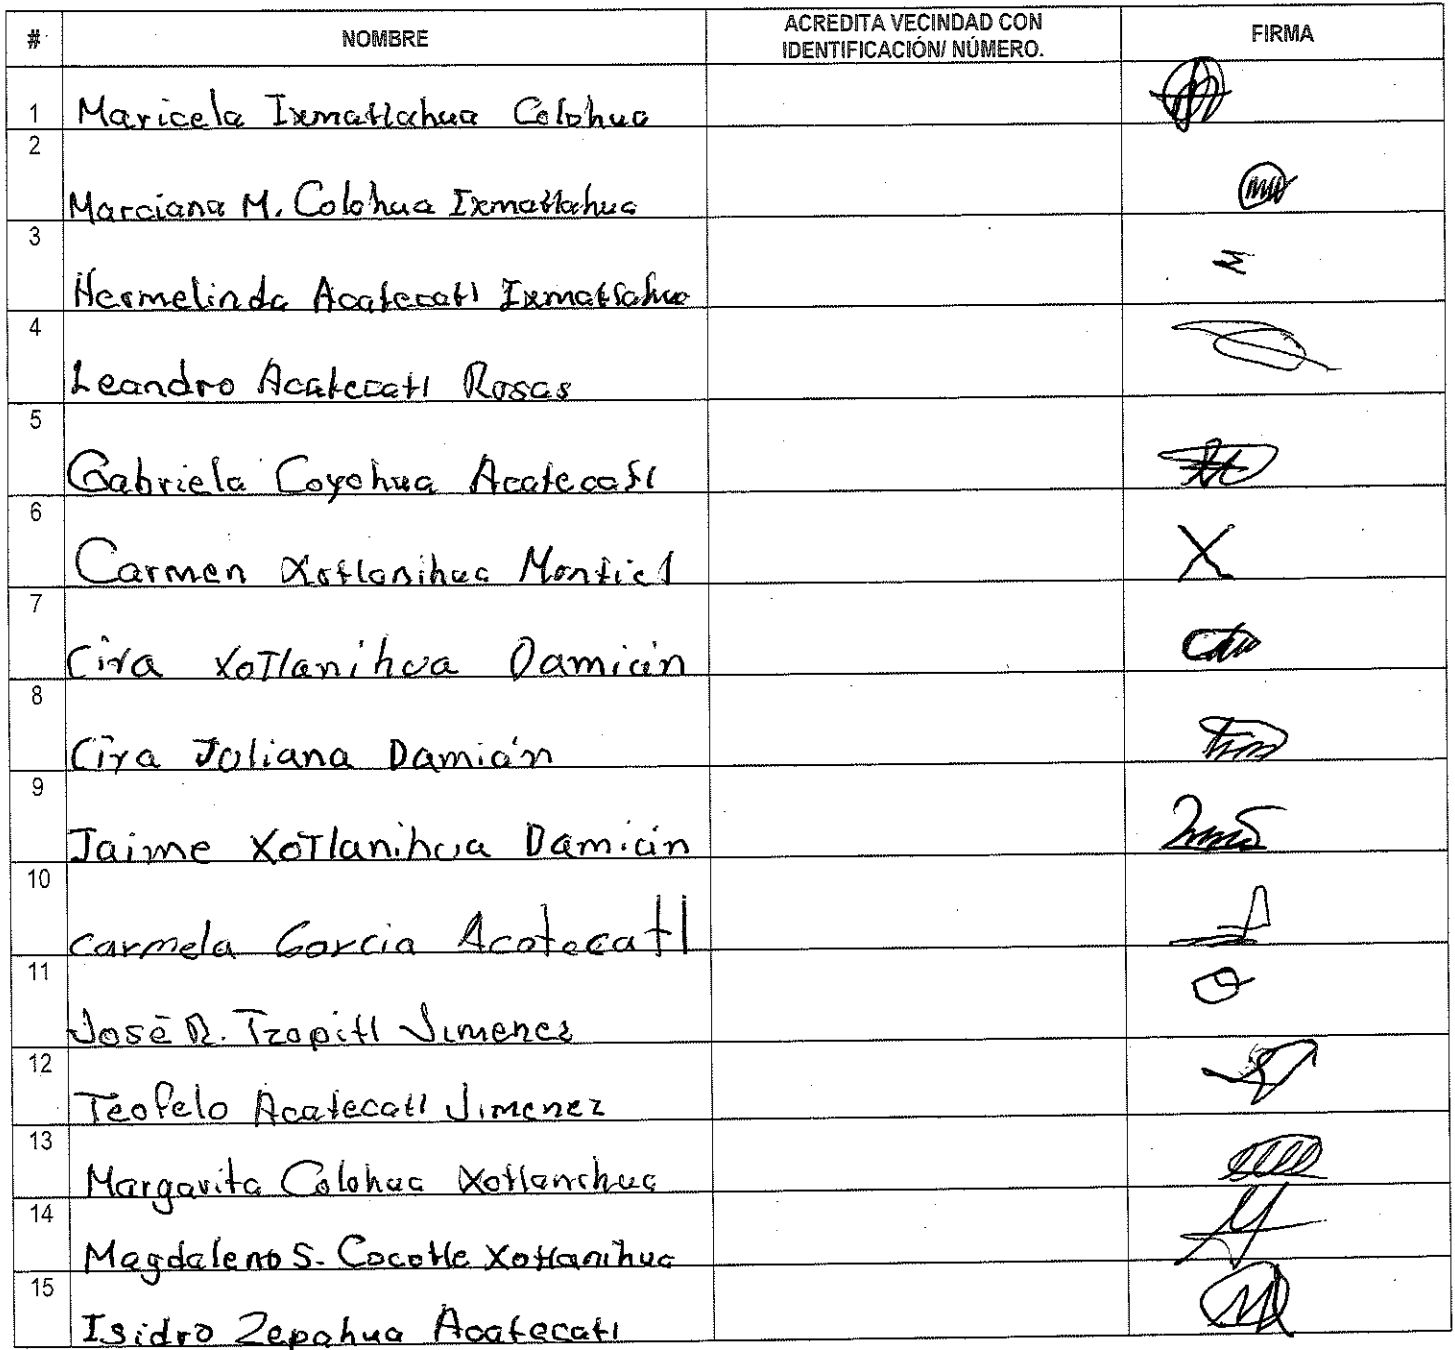 # NOMBRE ACREDITA VECINDAD CON IDENTIFICACIÓN/ NÚMERO. FIRMA
1 Maricela Ixmatlahua Colohua
2 Marciana M. Colohua Ixmatlahua
3 Hermelinda Acatecatl Ixmatlahua
4 Leandro Acatecatl Rosas
5 Gabriela Coyohua Acatecatl
6 Carmen Xotlanihua Montiel X
7 Cira XoTlanihua Damián
8 Cira Juliana Damián
9 Jaime XoTlanihua Damián
10 Carmela Garcia Acatecatl
11 José R. Tzopitl Jimenez
12 Teofelo Acatecatl Jimenez
13 Margarita Colohua Xotlanehua
14 Magdaleno S. Cocotle Xotlanihua
15 Isidro Zepahua Acatecatl